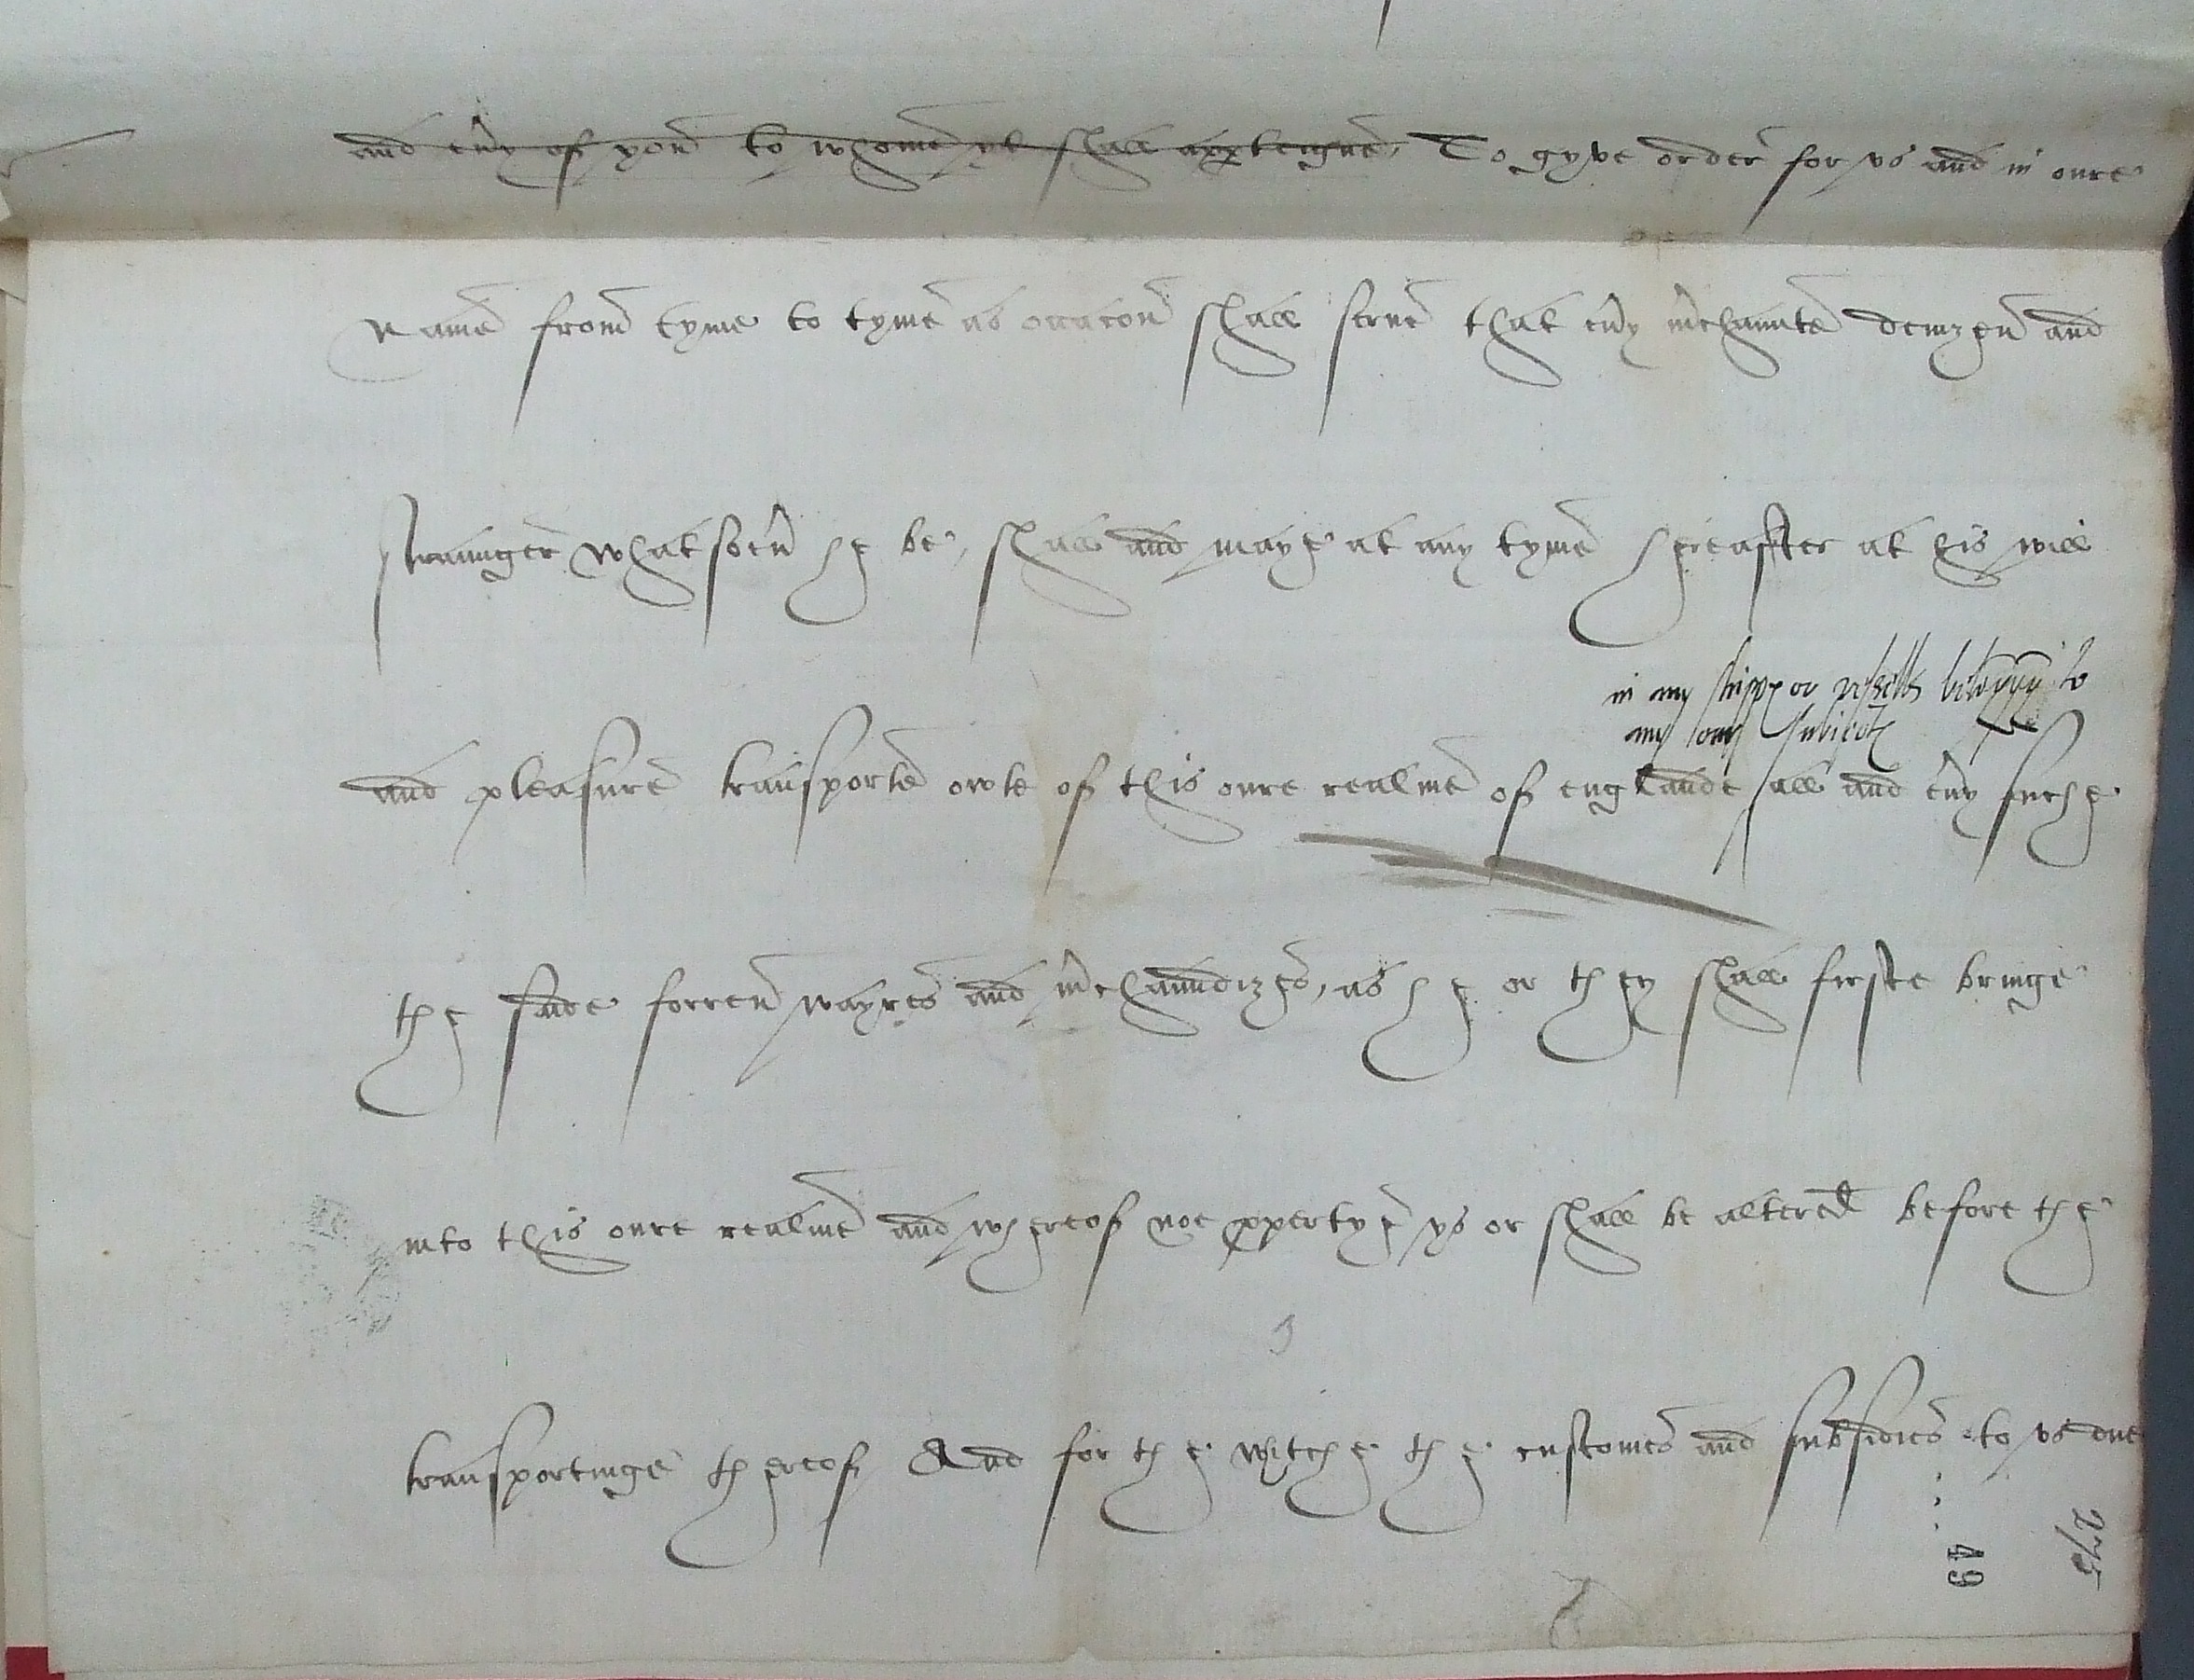 and eūy of you to whome yt shall appteigne, To gyve order for vs and in oure
Name from tyme to tyme as occacon shall serue that eūy m̄chaunte denizen and
straunger whatsoeū he be, shall and maye at any tyme hereafter at his will
in any shipp or vessells belonging to
any our subiects
and pleasure transporte owte of this oure realme of englande all and eūy suche
the saide forren wayres and m̄chaundizes, as he or they shall firste bringe
into this oure realme and whereof noe pperty ys or shall be altered before the
transportinge thereof And for the witche the customes and subsidies to vs due
49
275